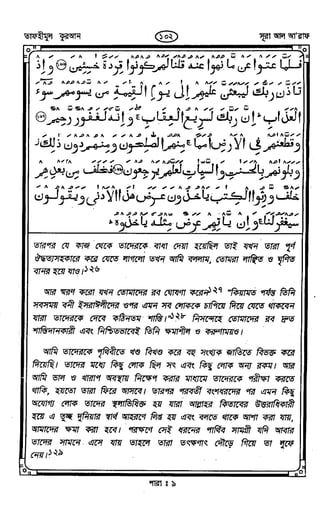 তাফহীমুল কুরআন
১০২
সূরা আল আ'রাফ
فَلَمَّا عَتَوْا عَنْ مَّا نُهُوْا عَنْهُ قُلْنَا لَهُمْ كُوْنُوْا قِرَدَةً خٰسِئِيْنَ ﴿١٦٦﴾ وَ اِذْ
تَاَذَّنَ رَبُّكَ لَيَبْعَثَنَّ عَلَيْهِمْ اِلٰى يَوْمِ الْقِيٰمَةِ مَنْ يَّسُوْمُهُمْ سُوْٓءَ
الْعَذَابِ ؕ اِنَّ رَبَّكَ لَسَرِيْعُ الْعِقَابِ ۖۚ وَ اِنَّهٗ لَغَفُوْرٌ رَّحِيْمٌ ﴿١٦٧﴾
وَ قَطَّعْنٰهُمْ فِى الْاَرْضِ اُمَمًا ۚ مِنْهُمُ الصّٰلِحُوْنَ وَ مِنْهُمْ دُوْنَ ذٰلِكَ ۫
وَ بَلَوْنٰهُمْ بِالْحَسَنٰتِ وَ السَّيِّاٰتِ لَعَلَّهُمْ يَرْجِعُوْنَ ﴿١٦٨﴾ فَخَلَفَ مِنْۢ بَعْدِهِمْ
خَلْفٌ وَّرِثُوا الْكِتٰبَ يَاْخُذُوْنَ عَرَضَ هٰذَا الْاَدْنٰى وَ يَقُوْلُوْنَ
سَيُغْفَرُ لَنَا ۚ وَ اِنْ يَّاْتِهِمْ عَرَضٌ مِّثْلُهٗ يَاْخُذُوْهُ ؕ
তারপর যে কাজ থেকে তাদেরকে বাধা দেয়া হয়েছিল তাই যখন তারা পূর্ণ
ঔদ্ধত্যসহকারে করে যেতে লাগলো তখন আমি বললাম, তোমরা লাঞ্ছিত ও ঘৃণিত
বানর হয়ে যাও।১২৬
আর স্মরণ করো যখন তোমাদের রব ঘোষণা করেন১২৭ “কিয়ামত পর্যন্ত তিনি
সবসময় বনী ইসরাঈলীদের ওপর এমন সব লোককে চাপিয়ে দিতে যেতে থাকবেন
যারা তাদেরকে দেবে কঠিনতম শাস্তি।”১২৮ নিসন্দেহে তোমাদের রব দ্রুত
শাস্তিদানকারী এবং নিশ্চিতভাবেই তিনি ক্ষমাশীল ও করুণাময়ও।
আমি তাদেরকে পৃথিবীতে খণ্ড বিখণ্ড করে বহু সংখ্যক জাতিতে বিভক্ত করে
দিয়েছি। তাদের মধ্যে কিছু লোক ছিল সৎ এবং কিছু লোক অন্য রকম। আর
আমি ভাল ও খারাপ অবস্থায় নিক্ষেপ করার মাধ্যমে তাদেরকে পরীক্ষা করতে
থাকি, হয়তো তারা ফিরে আসবে। তারপর পরবর্তী বংশধরদের পর এমন কিছু
অযোগ্য লোক তাদের স্থলাভিষিক্ত হয় যারা আল্লাহর কিতাবের উত্তরাধিকারী
হয়ে এ তুচ্ছ দুনিয়ার স্বার্থ আহরণে লিপ্ত হয় এবং বলতে থাকে আশা করা যায়,
আমাদের ক্ষমা করা হবে। পরক্ষণে সেই ধরনের পার্থিব সামগ্রী যদি আবার
তাদের সামনে এসে যায় তাহলে তারা তৎক্ষণাৎ দৌড়ে গিয়ে তা লুফে
নেয়।১২৯
পারা : ৯